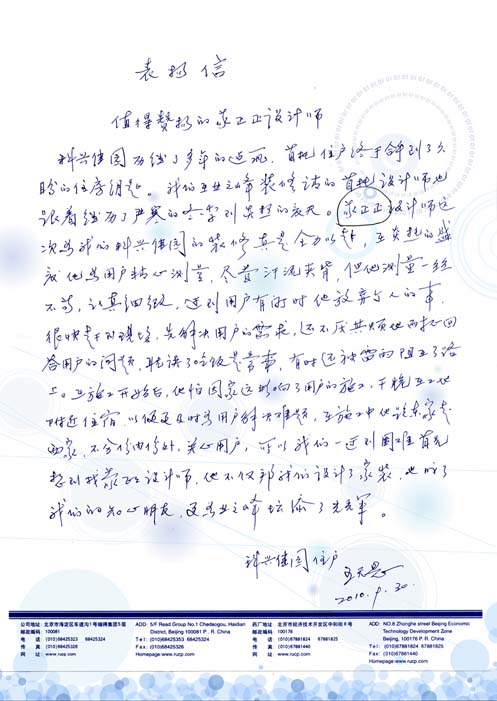 表扬信
值得赞扬的蒙正正设计师
科兴佳园历经了多年的 首批住户终于拿到了久
盼的住房钥匙。我们在业之峰装修 的首批设计师也
跟着经历了严寒的冬季到炎热的夏天。蒙正正设计师这
次为我们科兴佳园的装修真是全力以赴，在炎热的盛
夏他为用户精心测量，尽管汗流夹背，但他测量一丝
不苟，认真细致，遇到用户有事时他放弃 人的事，
很快赶到现场，先解决用户的需求，还不厌其烦地 回
答用户的问题，耽误了吃饭是常事，有时还被雷雨阻在了路
上。在施工开始后，他怕回家远影响了用户的施工，干脆在工地
附近住宿，以便更及时为用户解决难题，在施工中他跑东家走
西家，不分份内份外，关心用户，所以我们一遇到困难首先
想到找蒙正正设计师，他不仅帮我们设计了家装，也成了
我们的知心朋友，更为业之峰增添了光荣。
科兴佳园住户
2010.9.30
公司地址：北京市海淀区车道沟1号福得集团5层
邮政编码：100081
电 话：(010) 68425323 68425324
传 真：(010) 68425326
网 址：www.rucp.com
ADD: 5/F Read Group No.1 Chedaogou, Haidian
District, Beijing 100081 P . R. China
Tel : (010) 68425353 68425324
Fax : (010) 68425326
Homepage:www.rucp.com
药厂地址：北京市经济技术开发区中和街8号
邮政编码：100176
电 话：(010) 67881824 67881825
传 真：(010) 67881440
网 址：www.rucp.com
ADD: NO.8 Zhonghe street Beijing Economic
Technology Development Zone
Beijing, 100176 P . R. China
Tel:(010) 67881824 67881825
Fax:(010) 67881440
Homepage:www.rucp.com